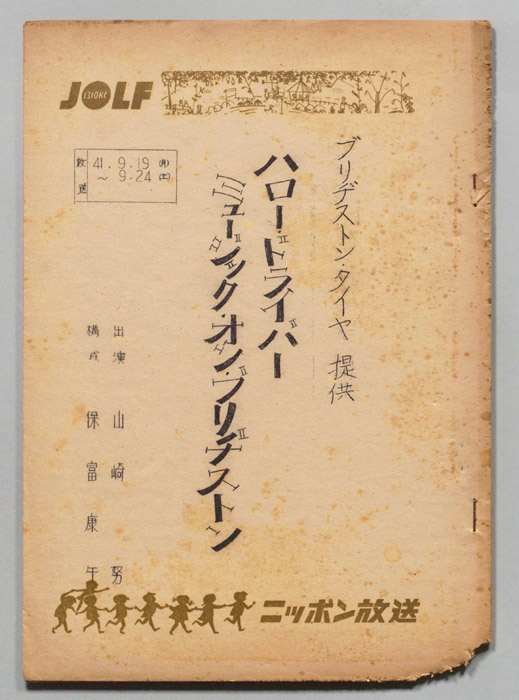 JOLF
1310KC
ブリヂストン・タイヤ 提供
ハロー・ドライバー
ミュージック・オン・ブリヂストン
放送 41.9.19(月)
~9.24(土)
出演 山崎 努
構成 保富康午
ニッポン放送